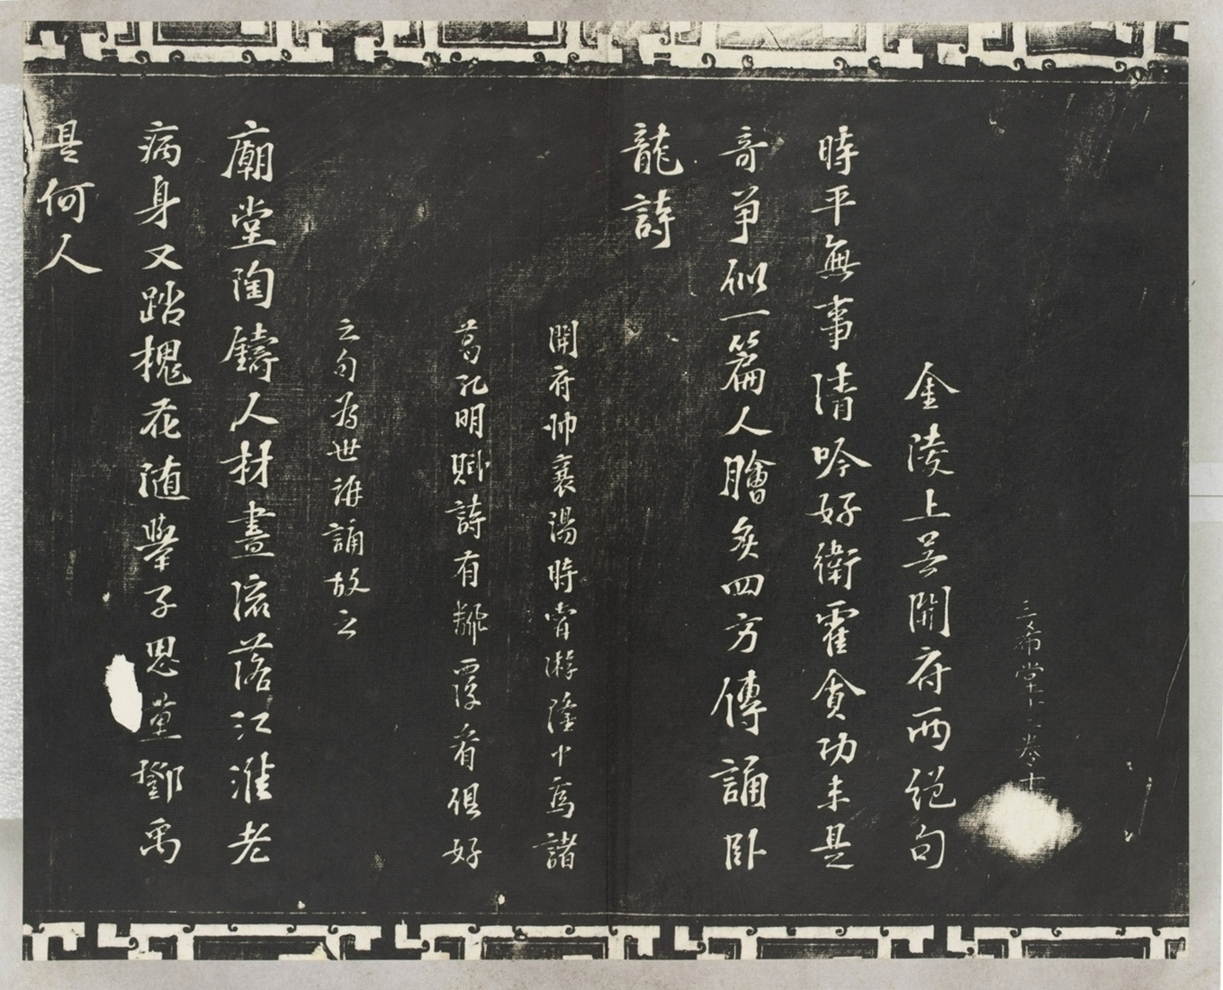 三希堂
金陵上吳開府兩絕句
時平無事清吟好衛霍貪功未是
奇爭似一篇人膾炙四方傳誦臥
龍詩
開府帥襄湯時嘗游隆中為諸
葛孔明賦詩有難覆看俱好
之句為世所誦故云
廟堂陶鑄人材盡流落江淮老
病身又踏槐花隨舉子思量鄧禹
是何人